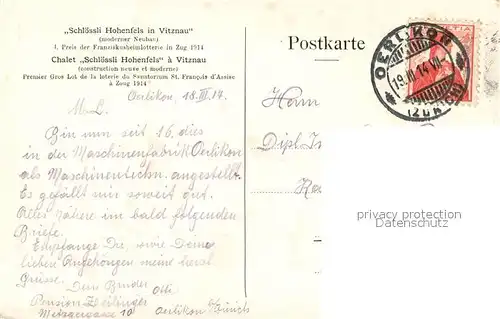 „Schlössli Hohenfels in Vitznau"
(moderner Neubau)
1. Preis der Franziskusheimlotterie in Zug 1914
Chalet „Schlössli Hohenfels" à Vitznau
(construction neuve et moderne)
Premier Gros Lot de la loterie du Sanatorium St. François d'Assise
à Zoug 1914
Postkarte
OERLIKON
19.III.14
(ZÜRICH)
Oerlikon, 18.III.14.
M. L.
Bin nun seit 16. dies
in der Maschinenfabrik Oerlikon
als Maschinentechn. angestellt.
Es gefällt mir soweit gut.
Alles nähere im bald folgenden
Briefe.
Empfange Du, sowie Deine
lieben Angehörigen meine herzl.
Grüsse.
Dein Bruder Otti
Pension
Metzgergasse 10 Oerlikon b/Zürich
Herrn
Dipl. I
privacy protection
Datenschutz